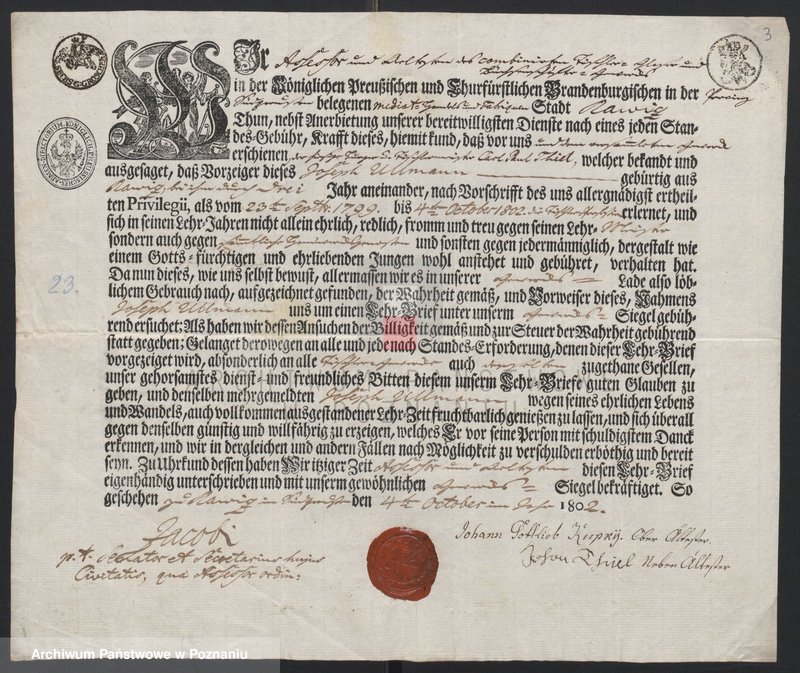 3
Wir Assessor und Aeltesten des combinirten Tischler- Glaser und
in der Königlichen Preußischen und Churfürstlichen Brandenburgischen in der Provinz
Südpreussen belegenen mediat Handels und Fabriquen Stadt Rawiz
Thun, nebst Anerbietung unserer bereitwilligsten Dienste nach eines jeden Stan-
des-Gebühr, Krafft dieses, hiemit kund, daß vor uns und dem versammleten Gewerck
erschienen der hiesige Bürger u. Tischlermeister Carl Thiel, welcher bekandt und
ausgesaget, daß Vorzeiger dieses Joseph Ullmann gebürtig aus
Rawiz drei Jahr aneinander, nach Vorschrifft des uns allergnädigst ertheil-
ten Privilegii, als vom 23ten Septbr. 1799. bis 4ten October 1802. die erlernet, und
sich in seinen Lehr-Jahren nicht allein ehrlich, redlich, fromm und treu gegen seinen Lehr-Meister
sondern auch gegen sämmtliche und sonsten gegen jedermänniglich, dergestalt wie
einem Gotts-fürchtigen und ehrliebenden Jungen wohl anstehet und gebühret, verhalten hat.
Da nun dieses, wie uns selbst bewust, allermassen wir es in unserer Gewercks- Lade also löb-
lichem Gebrauch nach, aufgezeichnet gefunden, der Wahrheit gemäß, und Vorweiser dieses, Nahmens
Joseph Ullmann uns um einen Lehr-Brief unter unserm Gewercks- Siegel gebüh-
rend ersuchet: Als haben wir dessen Ansuchen der Billigkeit gemäß und zur Steuer der Wahrheit gebührend
statt gegeben: Gelanget derowegen an alle und jede nach Standes-Erforderung, denen dieser Lehr-Brief
vorgezeiget wird, absonderlich an alle Tischlergewercke auch derselben zugethane Gesellen,
unser gehorsamstes dienst- und freundliches Bitten diesem unserm Lehr-Briefe guten Glauben zu
geben, und denselben mehrgemeldten Joseph Ullmann wegen seines ehrlichen Lebens
und Wandels, auch vollkommen ausgestandener Lehr-Zeit fruchtbarlich geniessen zu lassen, und sich überall
gegen denselben günstig und willfährig zu erzeigen, welches Er vor seine Person mit schuldigstem Danck
erkennen, und wir in dergleichen und andern Fällen nach Möglichkeit zu verschulden erböthig und bereit
seyn. Zu Uhrkund dessen haben Wir itziger Zeit Assessor und Aeltesten diesen Lehr-Brief
eigenhändig unterschrieben und mit unserm gewöhnlichen Gewercks- Siegel bekräftiget. So
geschehen zu Rawiz in Südpreussen den 4ten October im Jahr 1802.
23.
Jacobi
p. t. Senator et Secretarius hujus
Civitatis, qua Assessor ordin:
Johann Gottlieb Ober Ältester.
Johan Thiel Neben Ältester
Archiwum Państwowe w Poznaniu